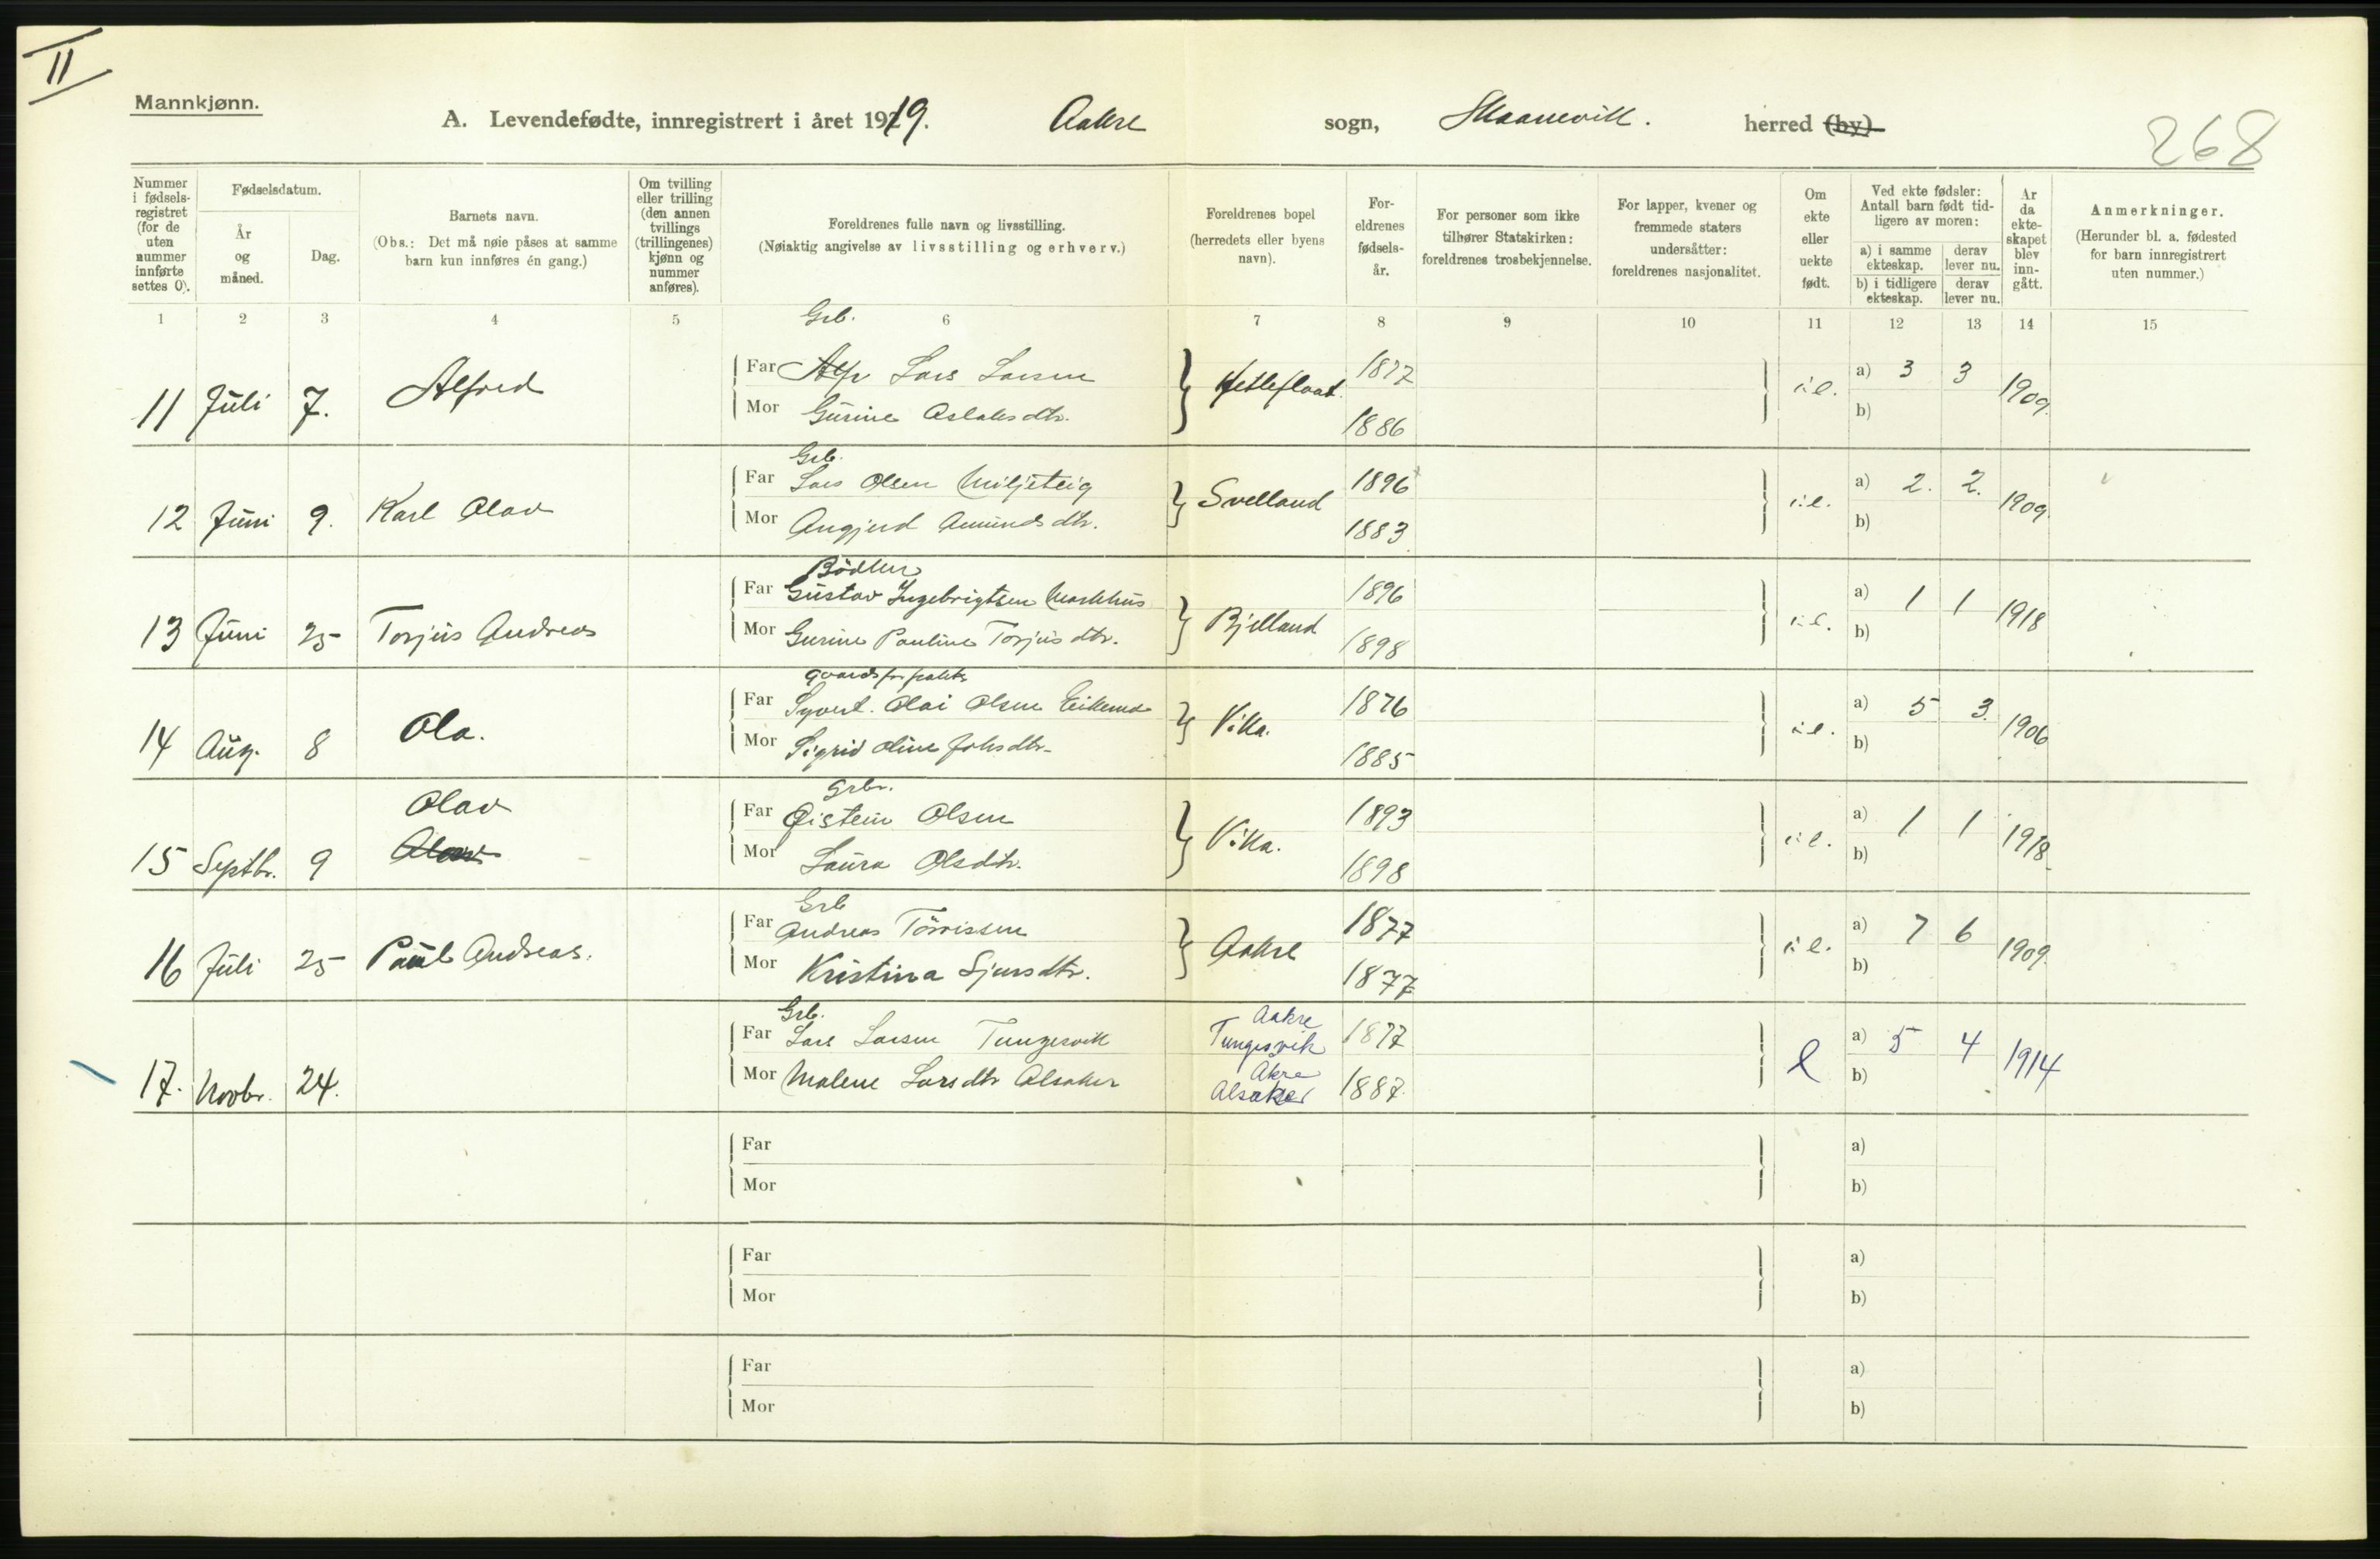 II
Mannkjønn.
A. Levendefødte, innregistrert i året 1919. Aakre sogn, Skaanevik. herred (by)
268
Nummer i fødselsregistret (for de uten nummer innførte settes 0).
Fødselsdatum.
År og måned.
Dag.
Barnets navn.
(Obs.: Det må nøie påses at samme barn kun innføres én gang.)
Om tvilling eller trilling (den annen tvillings (trillingenes) kjønn og nummer anføres).
Foreldrenes fulle navn og livsstilling.
(Nøiaktig angivelse av livsstilling og erhverv.)
Foreldrenes bopel (herredets eller byens navn).
Foreldrenes fødselsår.
For personer som ikke tilhører Statskirken: foreldrenes trosbekjennelse.
For lapper, kvener og fremmede staters undersåtter: foreldrenes nasjonalitet.
Om ekte eller uekte født.
Ved ekte fødsler: Antall barn født tidligere av moren:
a) i samme ekteskap. derav lever nu.
b) i tidligere ekteskap. derav lever nu.
År da ekteskapet blev inngått.
Anmerkninger.
(Herunder bl. a. fødested for barn innregistrert uten nummer.)
1 2 3 4 5 6 7 8 9 10 11 12 13 14 15
Grb.
11 Juli 7. Alfred Far Lars Larsen 1877 a) 3 3 1909.
Mor Gurine Aslaksdtr. 1886 b)
Grb.
12 Juni 9. Karl Olav Far Lars Olsen Miljeteig Svelland 1896 a) 2. 2. 1909.
Mor Angjerd Amundsdtr. 1883 b)
Bödker
13 Juni 25 Torjus Andreas Far Gustav Ingebrigtsen Markhus Bjelland 1896 a) 1 1 1918
Mor Gurine Pauline Torjusdtr. 1898 b)
14 Aug. 8 Ola. Far Syvert Olai Olsen Vika. 1876 a) 5 3. 1906
Mor Sigrid Oline Johsdtr. 1885 b)
Grbr.
15 Septbr. 9 Olav Far Øistein Olsen Vika. 1893 a) 1 1 1918.
Mor Laura Olsdtr. 1898 b)
Grb
16 Juli 25 Paul Andreas. Far Andreas Törrissen Aakre 1877 a) 7 6 1909.
Mor Kristina Sjursdtr. 1877 b)
Grb.
17. Novbr. 24. Far Lars Larsen Tungesvik Aakre Tungesvik 1877 e a) 5 4 1914
Mor Malene Larsdtr Alsaker Akre Alsaker 1887. b)
Far a)
Mor b)
Far a)
Mor b)
Far a)
Mor b)